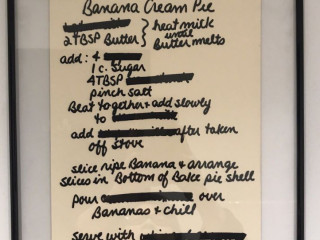 Banana Cream Pie
2 TBSP Butter } heat milk
until
Butter melts
add: 4
1 c. Sugar
4 TBSP
pinch salt
Beat together & add slowly
to
add after taken
off Stove
slice ripe Banana & arrange
slices in Bottom of Bake pie shell
pour over
Bananas & chill
serve with